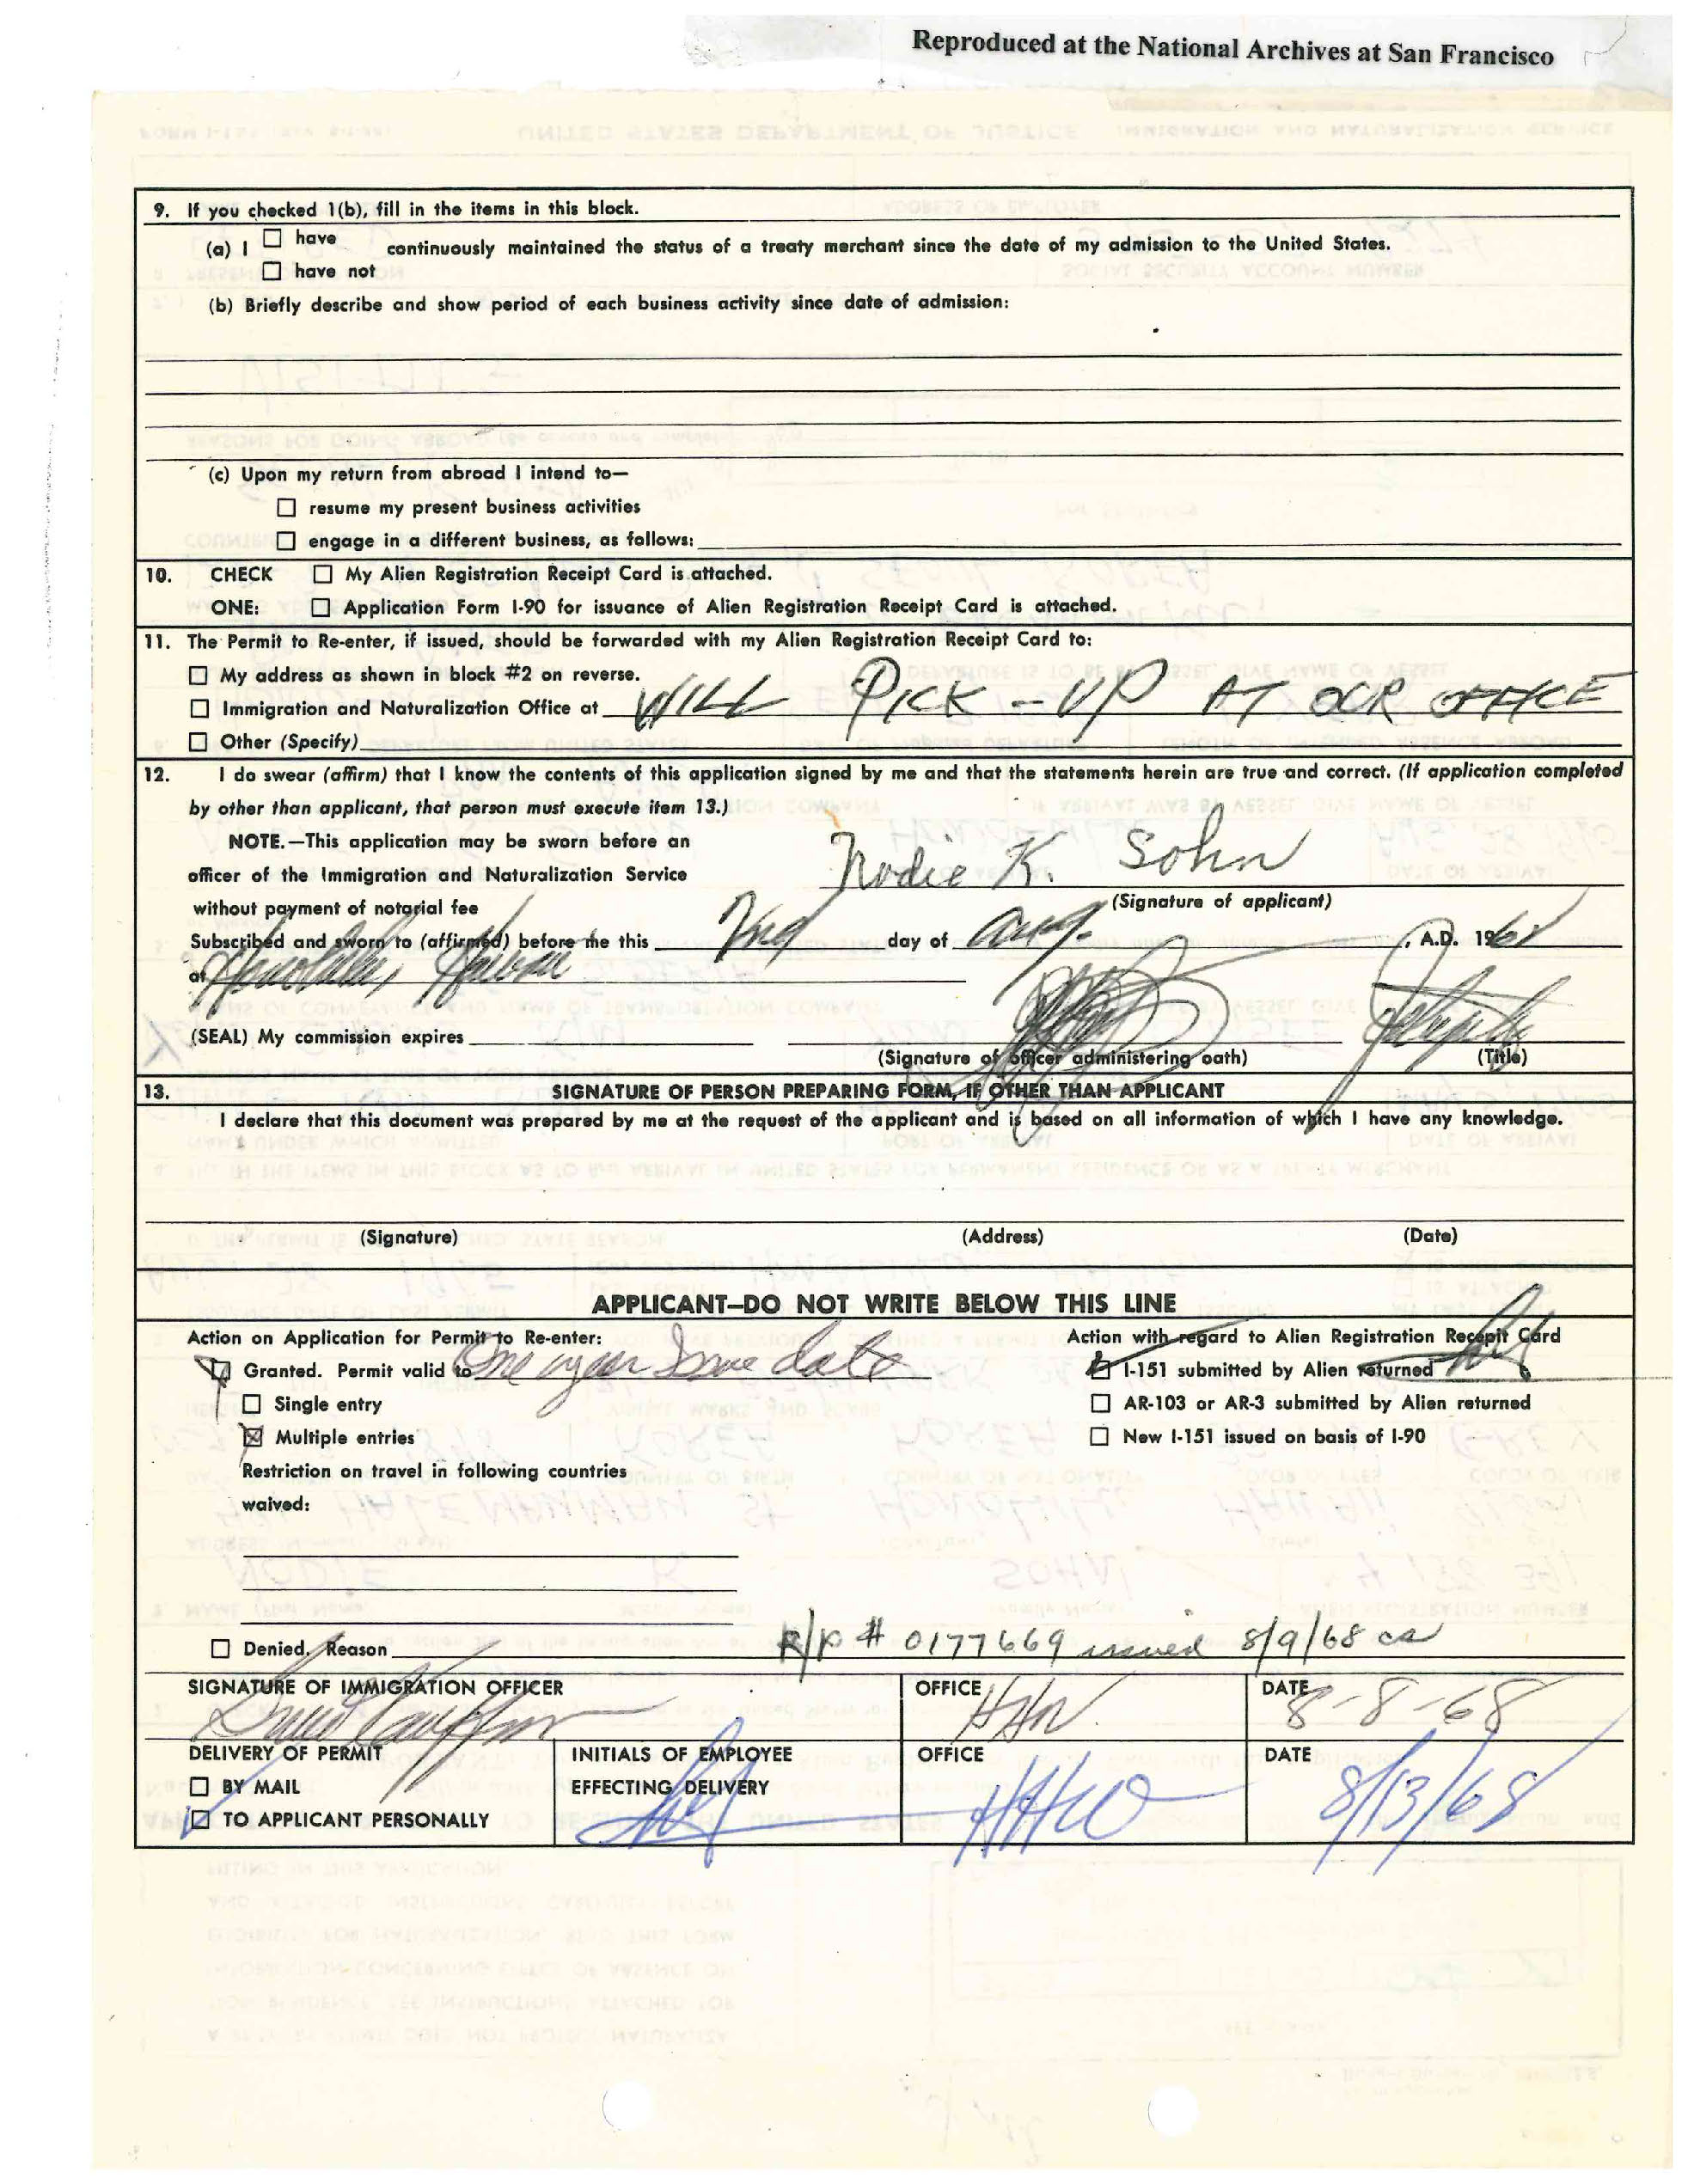 Reproduced at the National Archives at San Francisco
9. If you checked 1(b), fill in the items in this block.
(a) I ☐ have
☐ have not
continuously maintained the status of a treaty merchant since the date of my admission to the United States.
(b) Briefly describe and show period of each business activity since date of admission:
(c) Upon my return from abroad I intend to—
☐ resume my present business activities
☐ engage in a different business, as follows:
10. CHECK ☐ My Alien Registration Receipt Card is attached.
ONE: ☐ Application Form I-90 for issuance of Alien Registration Receipt Card is attached.
11. The Permit to Re-enter, if issued, should be forwarded with my Alien Registration Receipt Card to:
☐ My address as shown in block #2 on reverse.
☐ Immigration and Naturalization Office at WILL PICK-UP AT OUR OFFICE
☐ Other (Specify)
12. I do swear (affirm) that I know the contents of this application signed by me and that the statements herein are true and correct. (If application completed
by other than applicant, that person must execute item 13.)
NOTE.—This application may be sworn before an
officer of the Immigration and Naturalization Service
without payment of notarial fee
Nodie K. Sohn
(Signature of applicant)
Subscribed and sworn to (affirmed) before me this 2nd day of Aug. , A.D. 1968
at Honolulu, Hawaii
(SEAL) My commission expires
(Signature of officer administering oath) (Title)
13. SIGNATURE OF PERSON PREPARING FORM, IF OTHER THAN APPLICANT
I declare that this document was prepared by me at the request of the applicant and is based on all information of which I have any knowledge.
(Signature) (Address) (Date)
APPLICANT—DO NOT WRITE BELOW THIS LINE
Action on Application for Permit to Re-enter: Action with regard to Alien Registration Receipt Card
☑ Granted. Permit valid to One year Issue date ☑ I-151 submitted by Alien returned
☐ Single entry ☐ AR-103 or AR-3 submitted by Alien returned
☒ Multiple entries ☐ New I-151 issued on basis of I-90
Restriction on travel in following countries
waived:
☐ Denied. Reason R/P # 0177669 issued 8/9/68 ca
SIGNATURE OF IMMIGRATION OFFICER OFFICE HHW DATE 8-8-68
DELIVERY OF PERMIT INITIALS OF EMPLOYEE OFFICE DATE
☐ BY MAIL EFFECTING DELIVERY HHW 8/13/68
☑ TO APPLICANT PERSONALLY